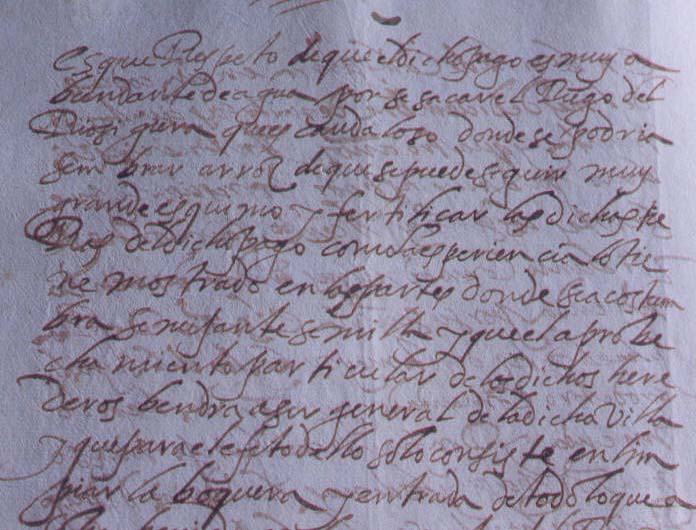 es que Respeto de que el dicho pago es muy a
bundante de agua por se sacar el Riego del
Rio sigura ques caudaloso donde se podria
sembrar arroz de que se puede seguir muy
grande esquimo y fertificar las dichas tie
Ras del dicho pago como la esperiencia lo tie
ne mostrado en las partes donde se acostum
bra semejante semilla y que el aprobe
chamiento particular de los dichos here
deros bendra a ser general de la dicha villa
y que para el efeto dello solo consiste en lim
piar la boquera y entrada de todo lo que a